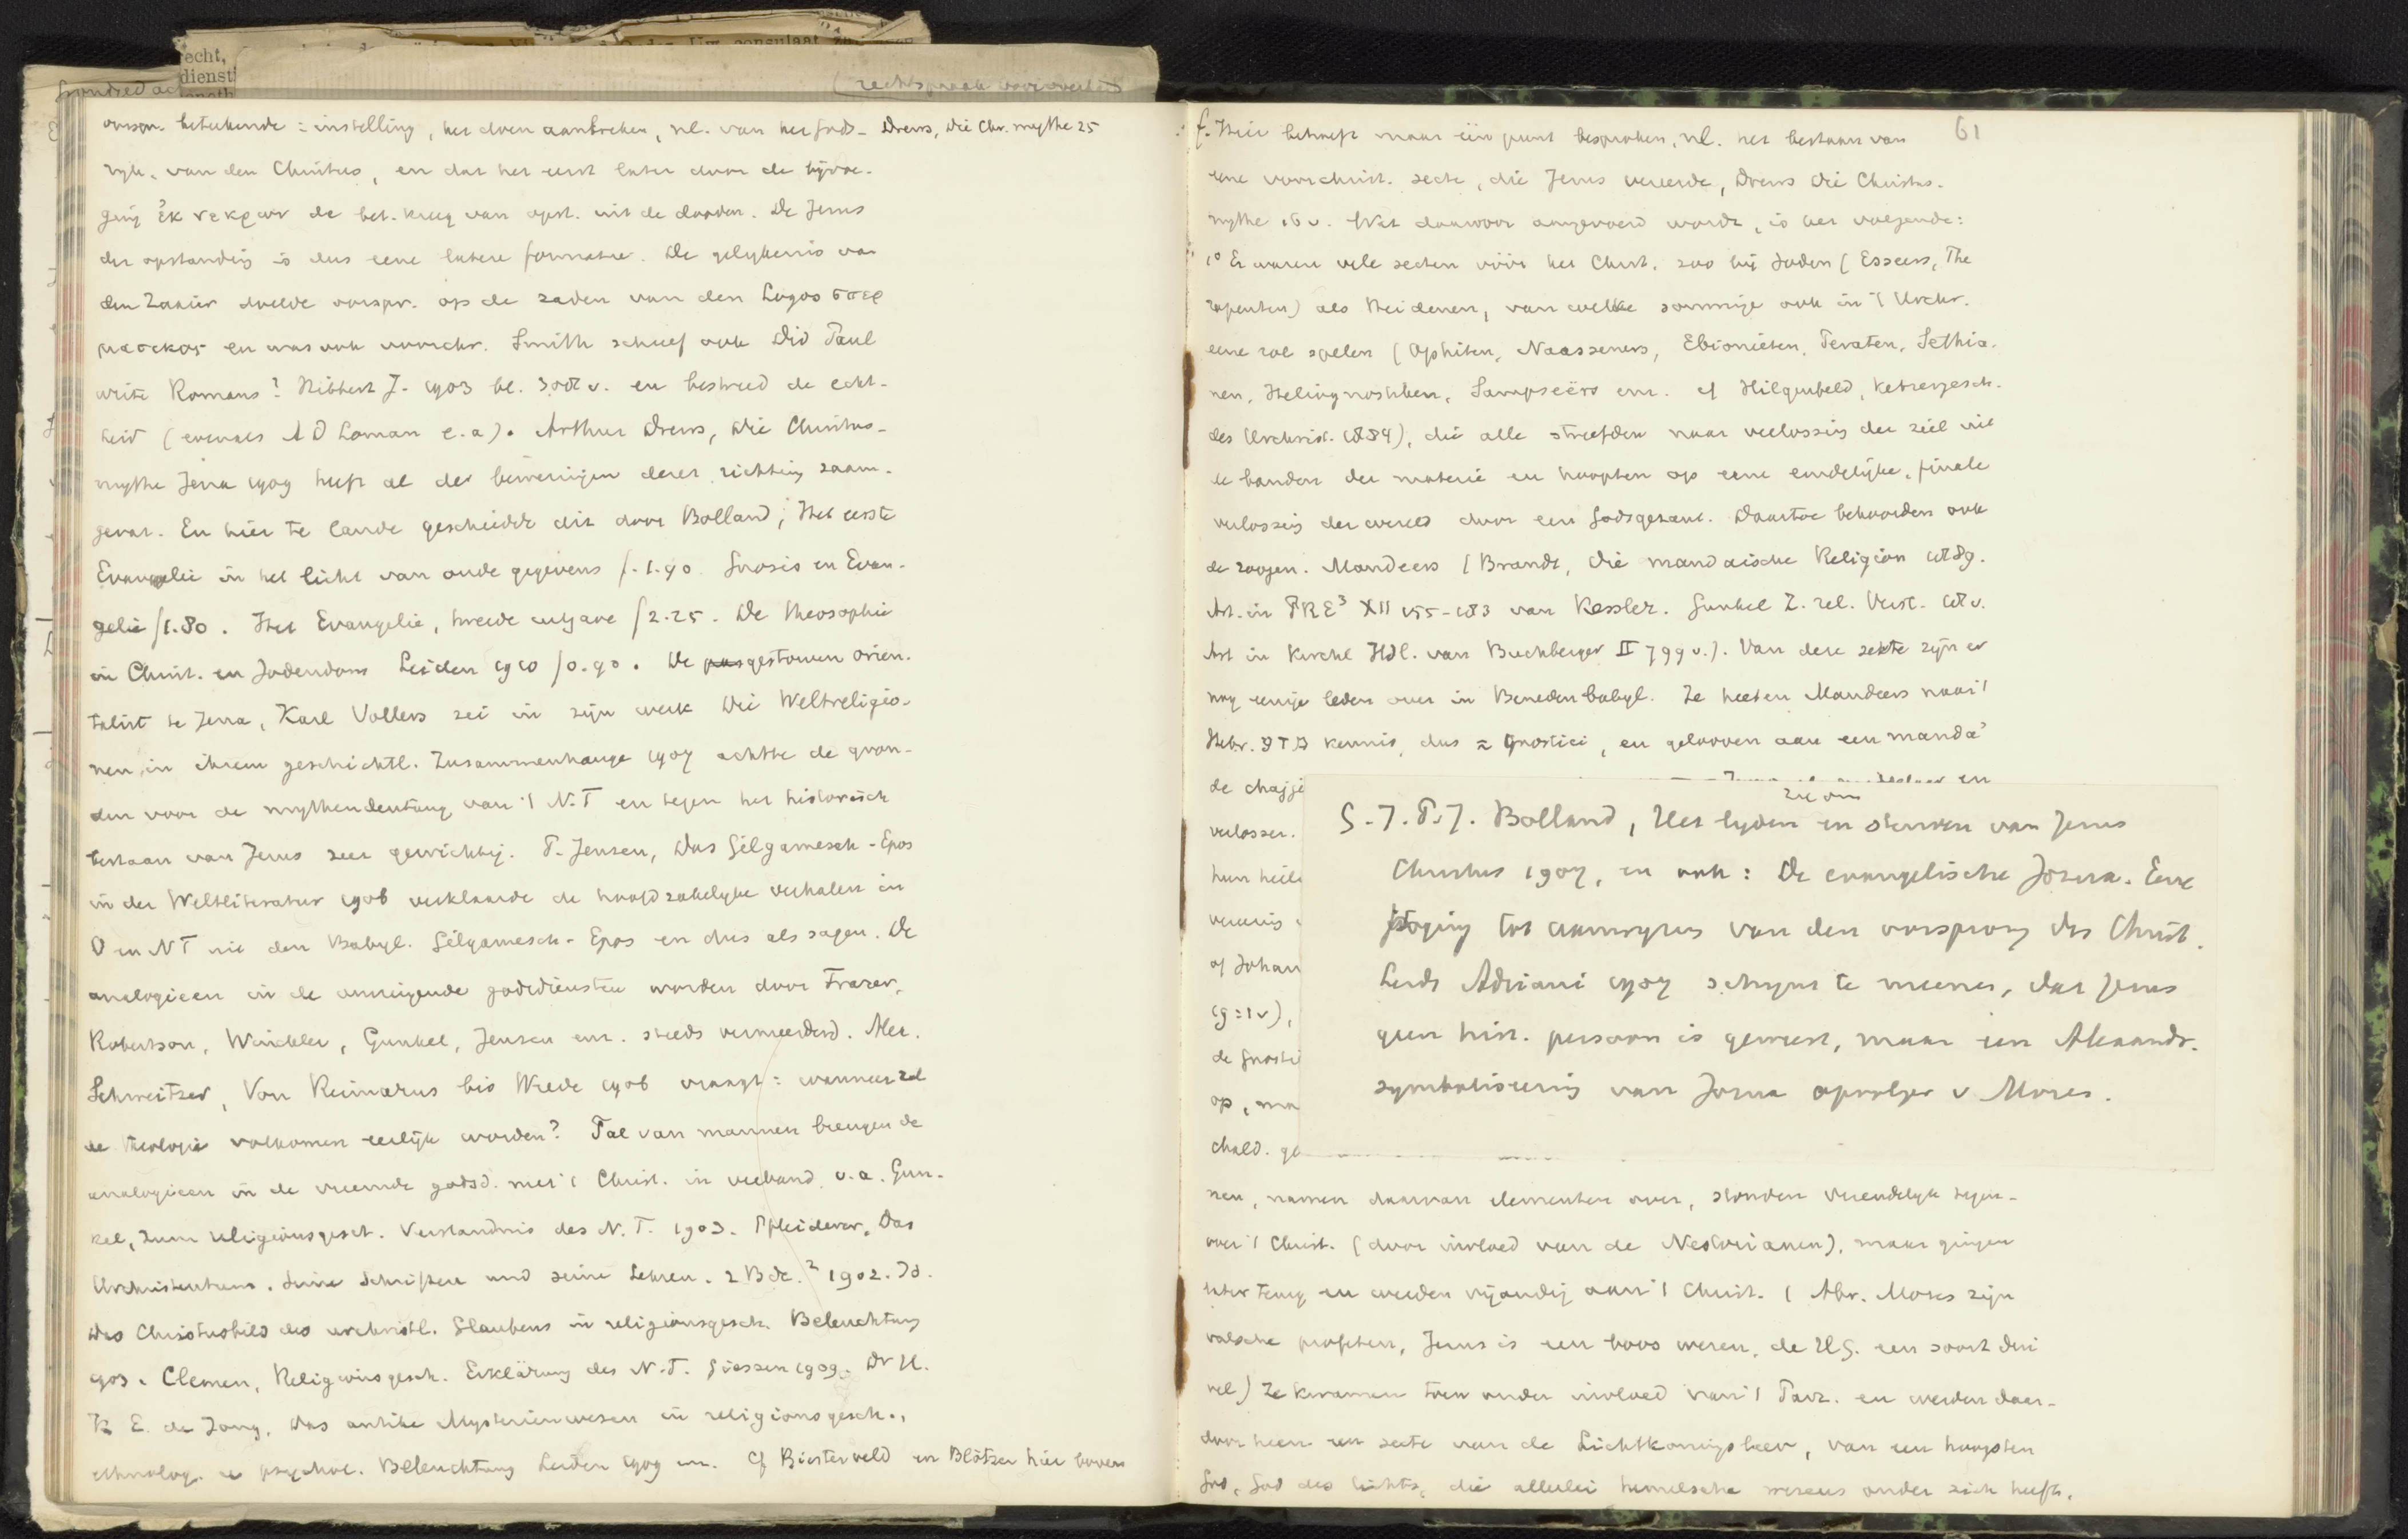 echt,
dienst
(rechtspraak
oorspr. beteekende = instelling, het doen aanbreken, nl. van het Gods- Drews, Die Chr. mythe 25
ryk, van den Christus, en dat het eerst later door de byvoe-
ging ἐκ νεκρων de bet. kreeg van opst. uit de dooden. De Jezus
der opstanding is dus eene latere formatie. De gelykenis van
den Zaaier doelde oorspr. op de zaden van den Logos σπερ
ματικος en was ook voorchr. Smith schreef ook Did Paul
write Romans? Hibbert J. 1903 bl. 308 v. en bestreed de echt-
heid (evenals A D Loman e.a). Arthur Drews, Die Christus-
mythe Jena 1909 heeft al de beweringen dezer richting saam-
gevat. En hier te lande geschiedde dit door Bolland, Het eerste
Evangelie in het licht van oude gegevens f. 1.90 Gnosis en Evan-
gelie f 1.80. Het Evangelie, tweede uitgave f 2.25. De theosophie
in Christ. en Jodendom Leiden 1910 f 0.90. De gestorven orien-
talist te Jena, Karl Vollers zei in zijn werk Die Weltreligio-
nen in ihrem geschichtl. Zusammenhange 1907 achtte de gron-
den voor de mythendeutung van 't N.T en tegen het historisch
bestaan van Jezus zeer gewichtig. P. Jensen, Das Gilgamesch-Epos
in der Weltliteratur 1906 verklaarde de hoofdzakelyke verhalen in
O en NT uit den Babyl. Gilgamesch-Epos en dus als sagen. De
analogieen in de omringende godsdiensten worden door Frazer,
Robertson, Winckler, Gunkel, Jensen enz. steeds vermeerderd. Alb.
Schweitzer, Von Reimarus bis Wrede 1906 vraagt: wanneer zal
de theologie volkomen eerlijk worden? Tal van mannen brengen de
analogieen in de vreemde godsd. met 't Christ. in verband, o.a. Gun-
kel, Zum religionsgesch. Verständnis des N.T. 1903. Pfleiderer, Das
Urchristentum. Seine Schriften und seine Lehren. 2 Bde.² 1902. Id.
Das Christusbild des urchristl. Glaubens in religionsgesch. Beleuchtung
1903. Clemen, Religionsgesch. Erklärung des N.T. Giessen 1909. Dr H.
K. E. de Jong, Das antike Mysterienwesen in religionsgesch.,
ethnolog. u psychol. Beleuchtung Leiden 1909 enz. Cf Biesterveld en Blötzer hier boven
f. Hier behoeft maar één punt besproken, nl. het bestaan van 61
eene voorchrist. secte, die Jezus vereerde, Drews Die Christus-
mythe 16 v. Wat daarvoor aangevoerd wordt, is het volgende:
1° Er waren vele secten vóór het Christ. zoo bij Joden (Esseers, The
rapeuten) als Heidenen, van welke sommige ook in 't Urchr.
eene rol spelen (Ophiten, Naasseners, Ebionieten, Peraten, Sethia-
nen, Heliognostiken, Sampseërs enz. cf Hilgenfeld, Ketzergesch.
des Urchrist. 1884), die alle streefden naar verlossing der ziel uit
de banden der materie en hoopten op eene eindelijke, finale
verlossing der wereld door een Godsgezant. Daartoe behoorden ook
de zoogen. Mandeers (Brandt, Die mandäische Religion 1889.
Art. in PRE³ XII 155-183 van Kessler. Gunkel Z. rel. Verst. 18 v.
Art in Kirchl Hdl. van Buchberger II 799 v.). Van deze sekte zijn er
nog eenige leden over in Beneden babyl. Ze heeten Mandeers naar 't
Hebr. מדע kennis, dus = Gnostici, en gelooven aan een manda
de chajje
verlosser.
S.J.P.J. Bolland, Het lyden en sterven van Jezus
Christus 1907, en ook: De evangelische Jozua. Eene
poging tot aanwyzing van den oorsprong des Christ.
Leids Adriani 1907 schynt te meenen, dat Jezus
geen hist. persoon is geweest, maar een Alexandr.
symboliseering van Jozua opvolger v. Mozes.
hun heili
of Johan
de Gnosti
op, ma
chald. ge
nen, namen daarvan elementen over, stonden vriendelyk tegen-
over 't Christ. (door invloed van de Nestorianen), maar gingen
later terug en werden vijandig aan 't Christ. (Abr. Mozes zijn
valsche profeten, Jezus is een boos wezen, de H.G. een soort dui
vel) Ze kwamen toen onder invloed van 't Parz. en werden daar-
door heen een secte van de Lichtkoningsleer, van een hoogsten
God, God des lichts, die allerlei hemelsche wezens onder zich heeft,